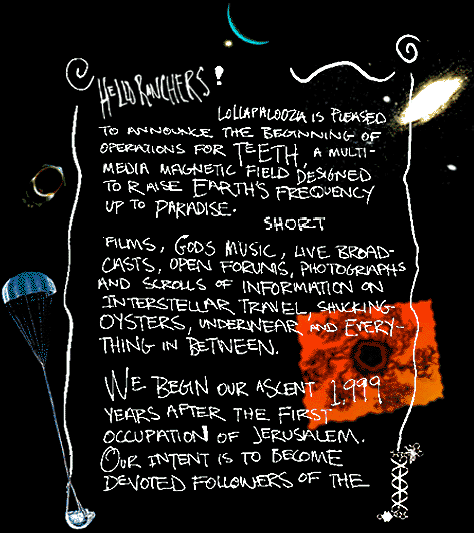 HELLO RANCHERS!
LOLLAPALOOZA IS PLEASED
TO ANNOUNCE THE BEGINNING OF
OPERATIONS FOR TEETH, A MULTI-
MEDIA MAGNETIC FIELD DESIGNED
TO RAISE EARTH'S FREQUENCY
UP TO PARADISE.
SHORT
FILMS, GODS MUSIC, LIVE BROAD-
CASTS, OPEN FORUMS, PHOTOGRAPHS
AND SCROLLS OF INFORMATION ON
INTERSTELLAR TRAVEL, SHUCKING
OYSTERS, UNDERWEAR, AND EVERY-
THING IN BETWEEN.
WE BEGIN OUR ASCENT 1,999
YEARS AFTER THE FIRST
OCCUPATION OF JERUSALEM.
OUR INTENT IS TO BECOME
DEVOTED FOLLOWERS OF THE